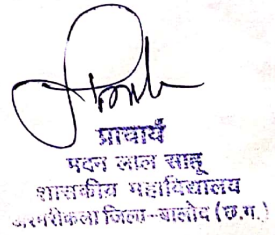 प्राचार्य
मदन लाल साहू
शासकीय महाविद्यालय
जिला-बालोद (छ.ग.)